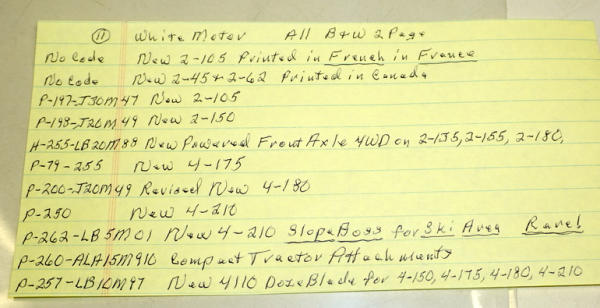 (11) White Motor All B+W 2 Page
No Code New 2-105 Printed in French in France
No Code New 2-45 + 2-62 Printed in Canada
P-197-J30M47 New 2-105
P-198-J20M49 New 2-150
A-255-LB20M88 New Powered Front Axle 4WD on 2-135, 2-155, 2-180,
P-79-255 New 4-175
P-200-J20M49 Revised New 4-180
P-250 New 4-210
P-262-LB5M01 New 4-210 Slope Boss for Ski Area Rare!
P-260-ALA15M910 Compact Tractor Attachments
P-257-LB10M97 New 4110 Doze Blade for 4-150, 4-175, 4-180, 4-210